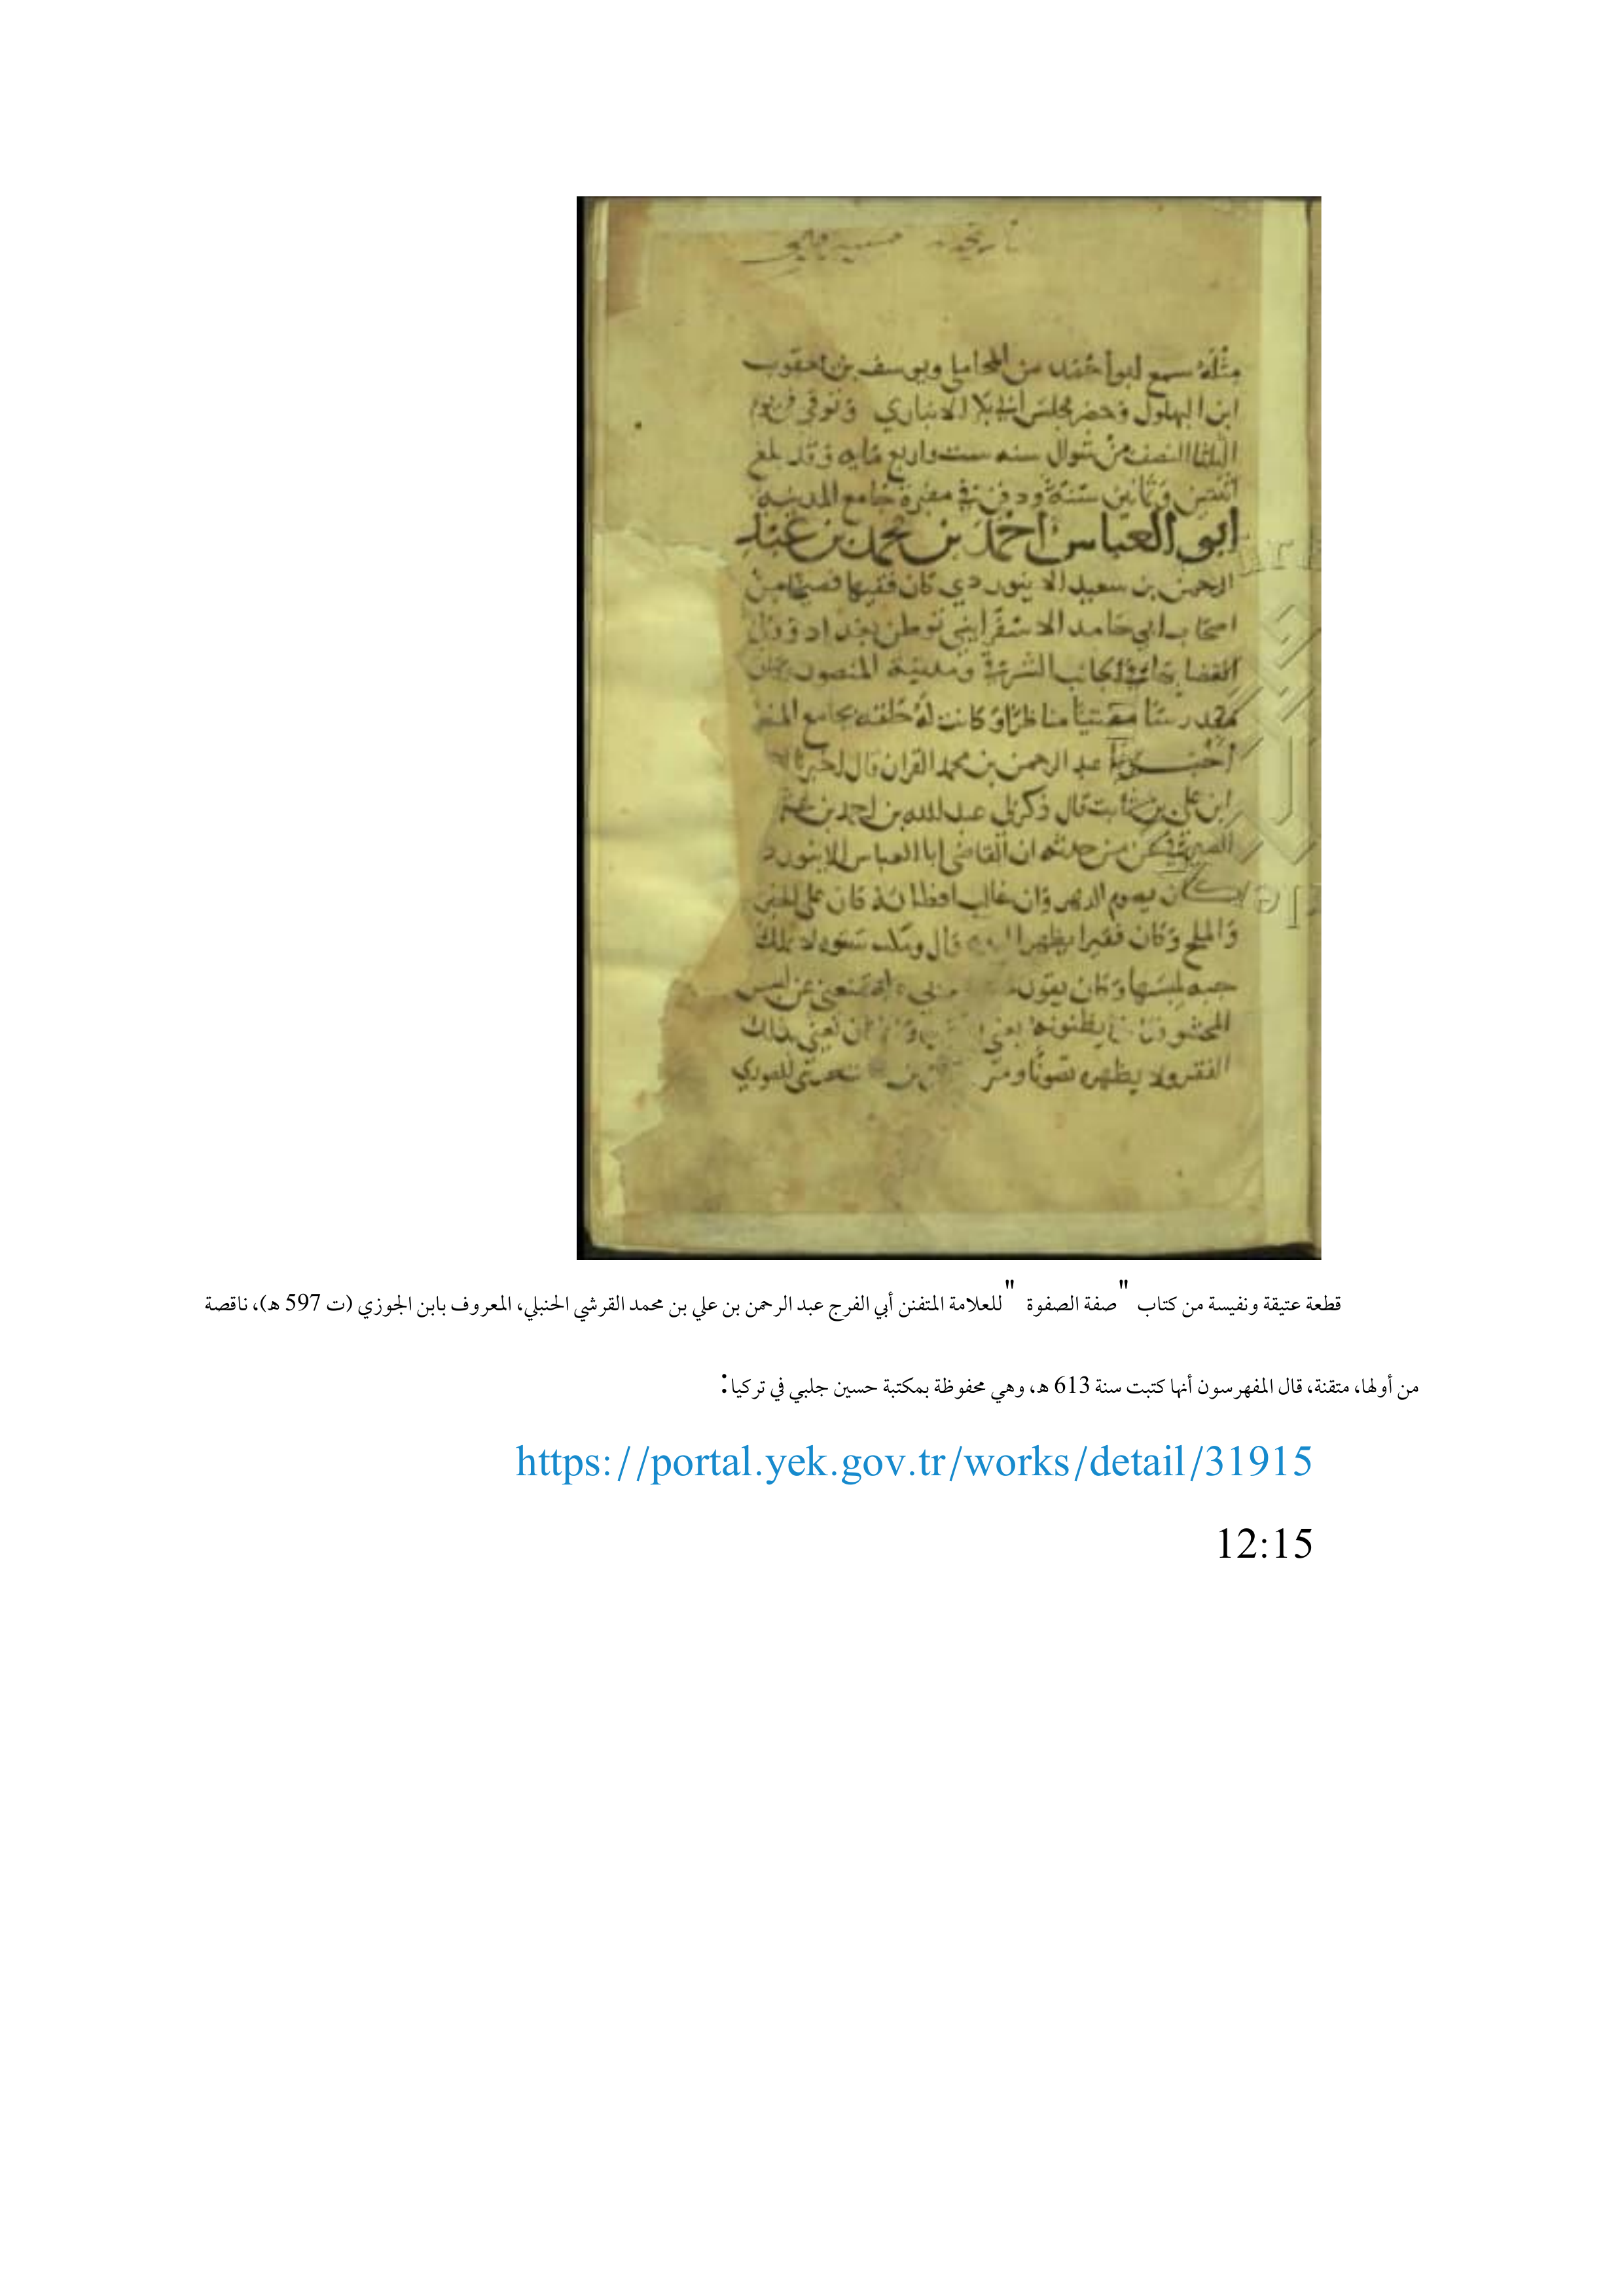 مثله سمع أبو أحمد من المحاملي ويوسف بن يعقوب
ابن البهلول وحضر مجلس الانباري وتوفي في يوم
الثلثا النصف من شوال سنه ست واربع مايه وقد بلغ
اثنتين وثمانين سنة ودفن في مقبرة جامع المدينه
ابو العباس احمد بن محمد بن عبد
الرحمن بن سعيد الابيوردي كان فقيها فصيحا من
اصحاب ابي حامد الاسفرايني توطن بغداد وولي
القضا الجانب الشرقي ومدينة المنصور
مدرسا مفتيا مناظرا وكانت له حلقه بجامع
أخبرنا عبد الرحمن بن محمد القزاز قال اخبرنا
ابن علي بن ثابت قال ذكر لي عبد الله بن احمد بن
عن من حدثه ان القاضي ابا العباس الابيوردي
كان يصوم الدهر وان غالب افطاره كان على الخبز
والملح وكان فقيرا يظهر قال ومكث شتوه لا يملك
جبه يلبسها وكان يقول تمنعني عن لبس
المحشو يظنونه يعني
الفقر ولا يظهره تصونا
قطعة عتيقة ونفيسة من كتاب "صفة الصفوة" للعلامة المتفنن أبي الفرج عبد الرحمن بن علي بن محمد القرشي الحنبلي، المعروف بابن الجوزي (ت 597 هـ)، ناقصة
من أولها، متقنة، قال المفهرسون أنها كتبت سنة 613 هـ، وهي محفوظة بمكتبة حسين جلبي في تركيا:
https://portal.yek.gov.tr/works/detail/31915
12:15